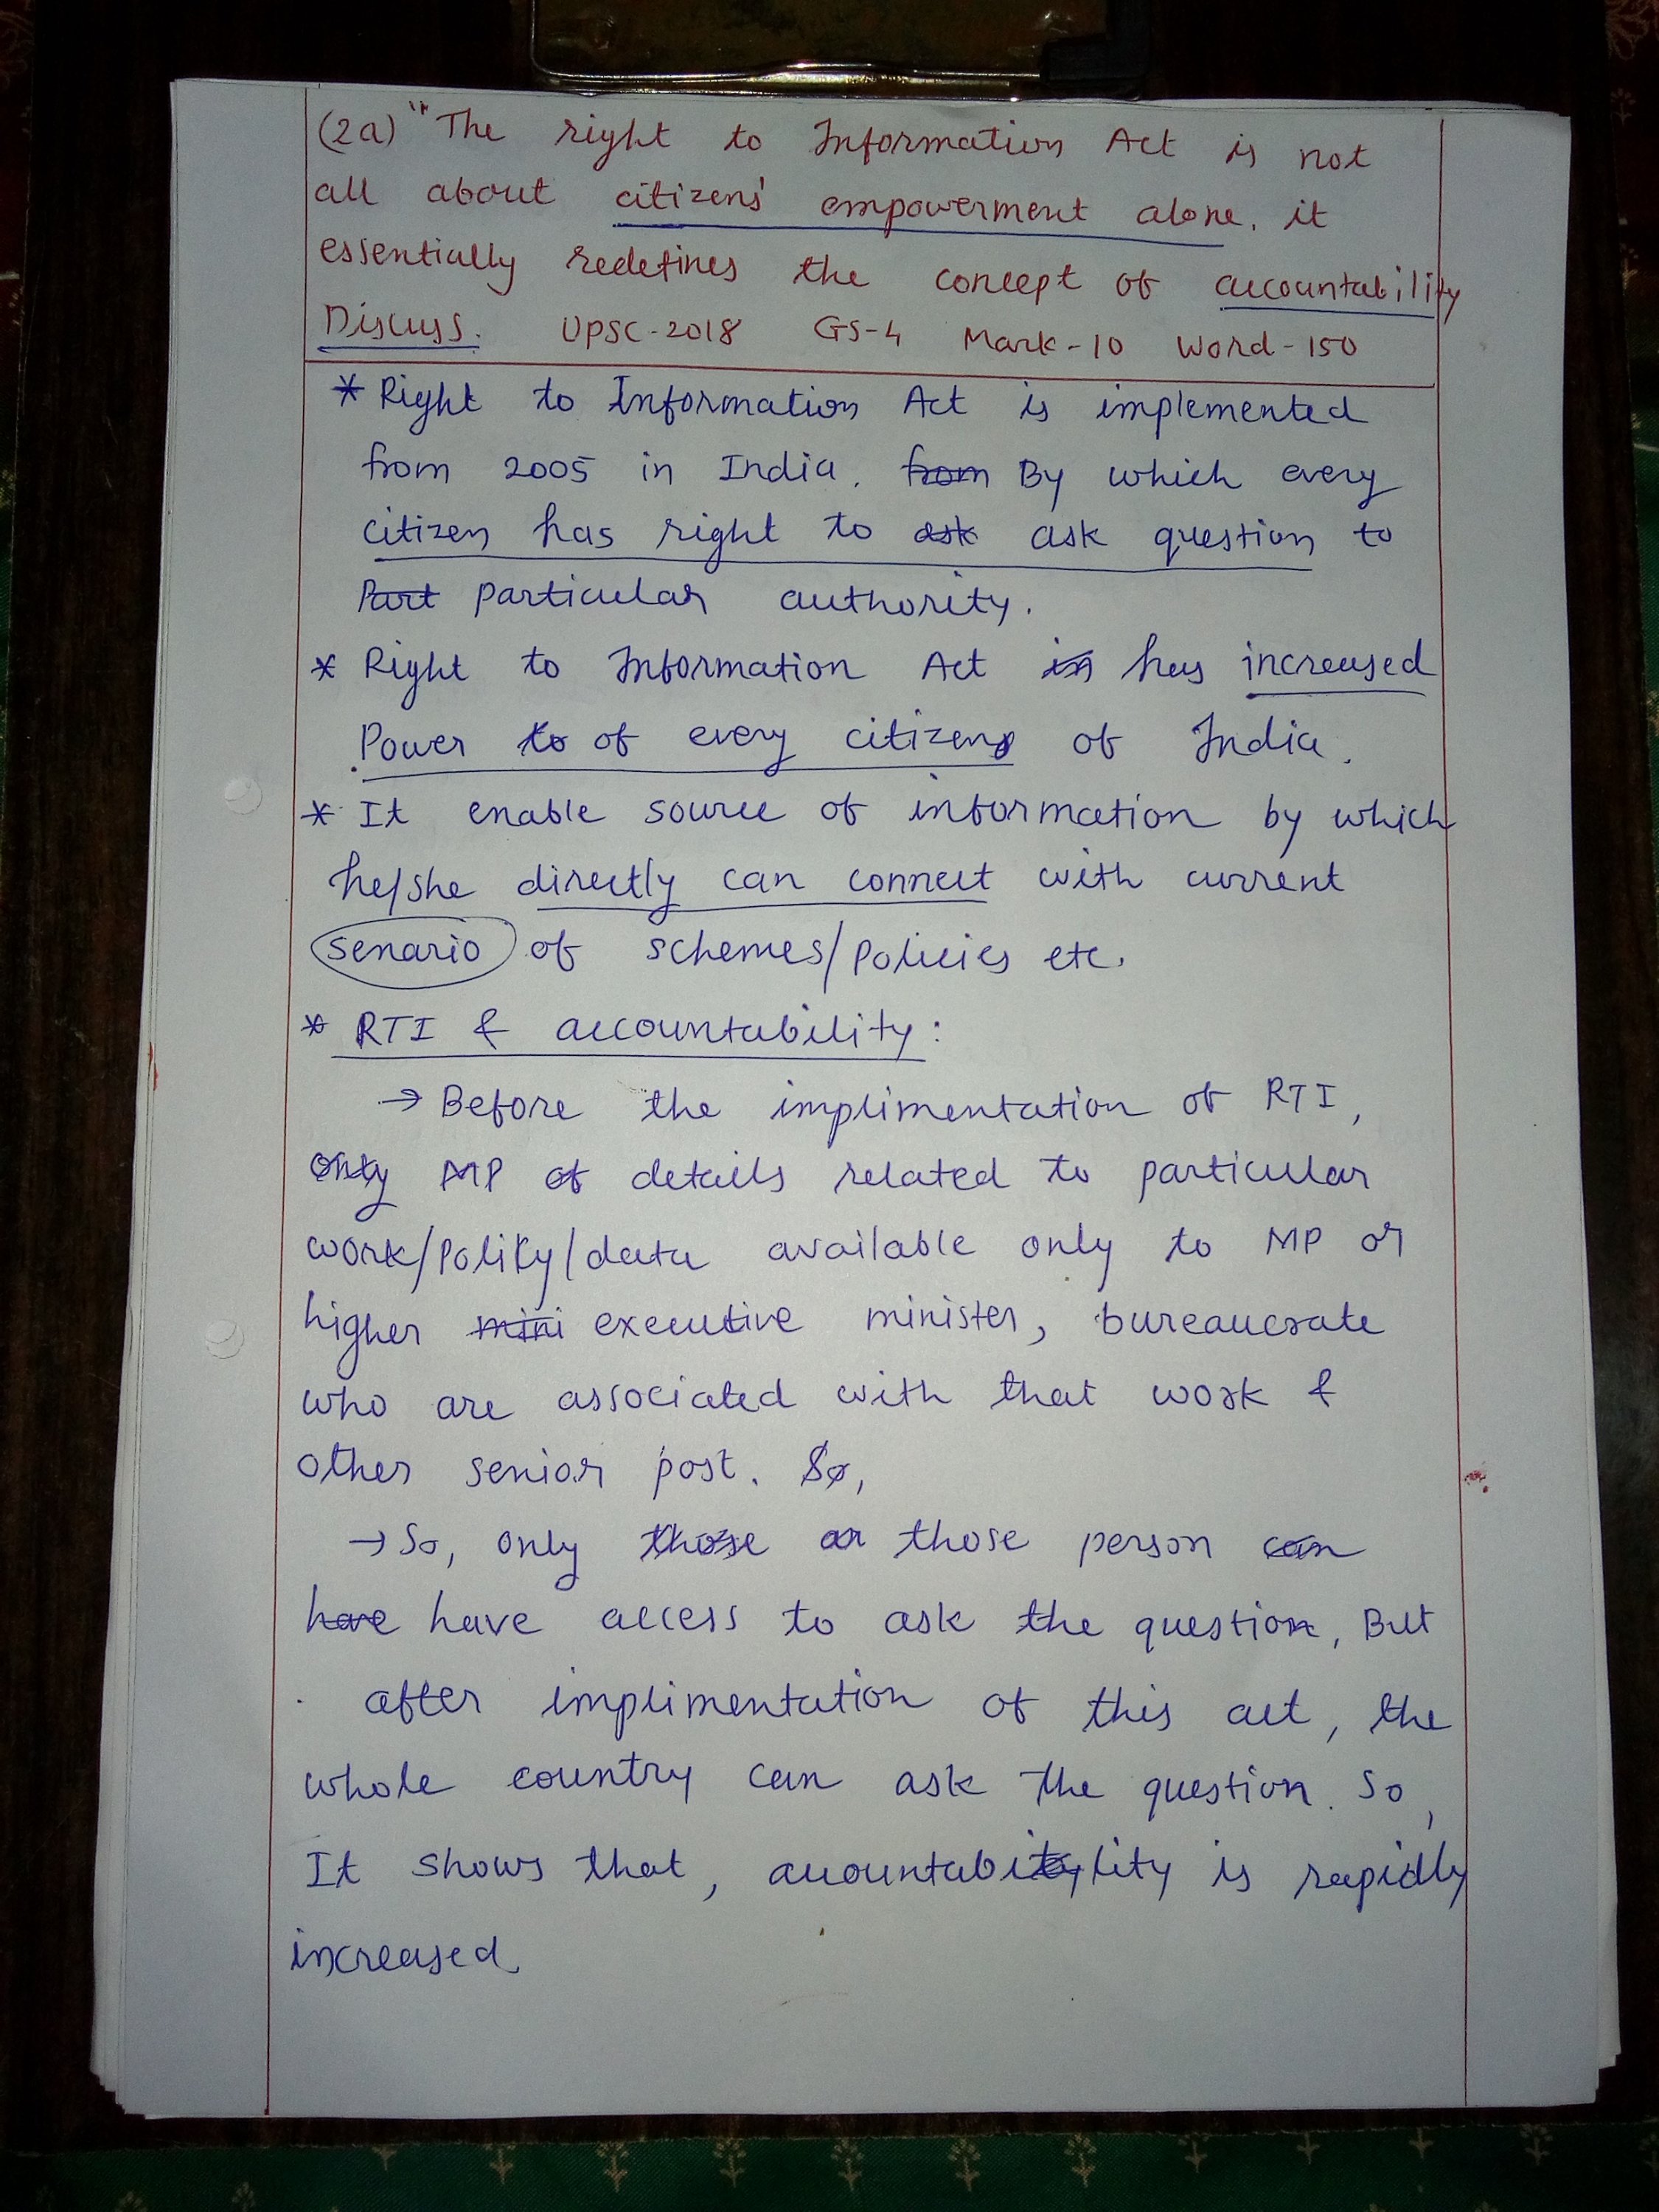 (2a) "The right to Information Act is not
all about citizens' empowerment alone, it
essentially redefines the concept of accountability
Discuss. UPSC-2018 GS-4 Mark-10 Word-150
* Right to Information Act is implemented
from 2005 in India. from By which every
citizen has right to ask ask question to
Part particular authority.
* Right to Information Act in has increased
Power to of every citizens of India.
* It enable source of information by which
he/she directly can connect with current
senario of schemes/policies etc.
* RTI & accountability:
→ Before the implimentation of RTI,
only MP of details related to particular
work/polity/data available only to MP or
higher mini executive minister, bureaucrate
who are associated with that work &
other senior post. So,
→ So, only those ar those person can
have have access to ask the question, But
after implimentation of this act, the
whole country can ask the question. So,
It shows that, accountability is rapidly
increased.